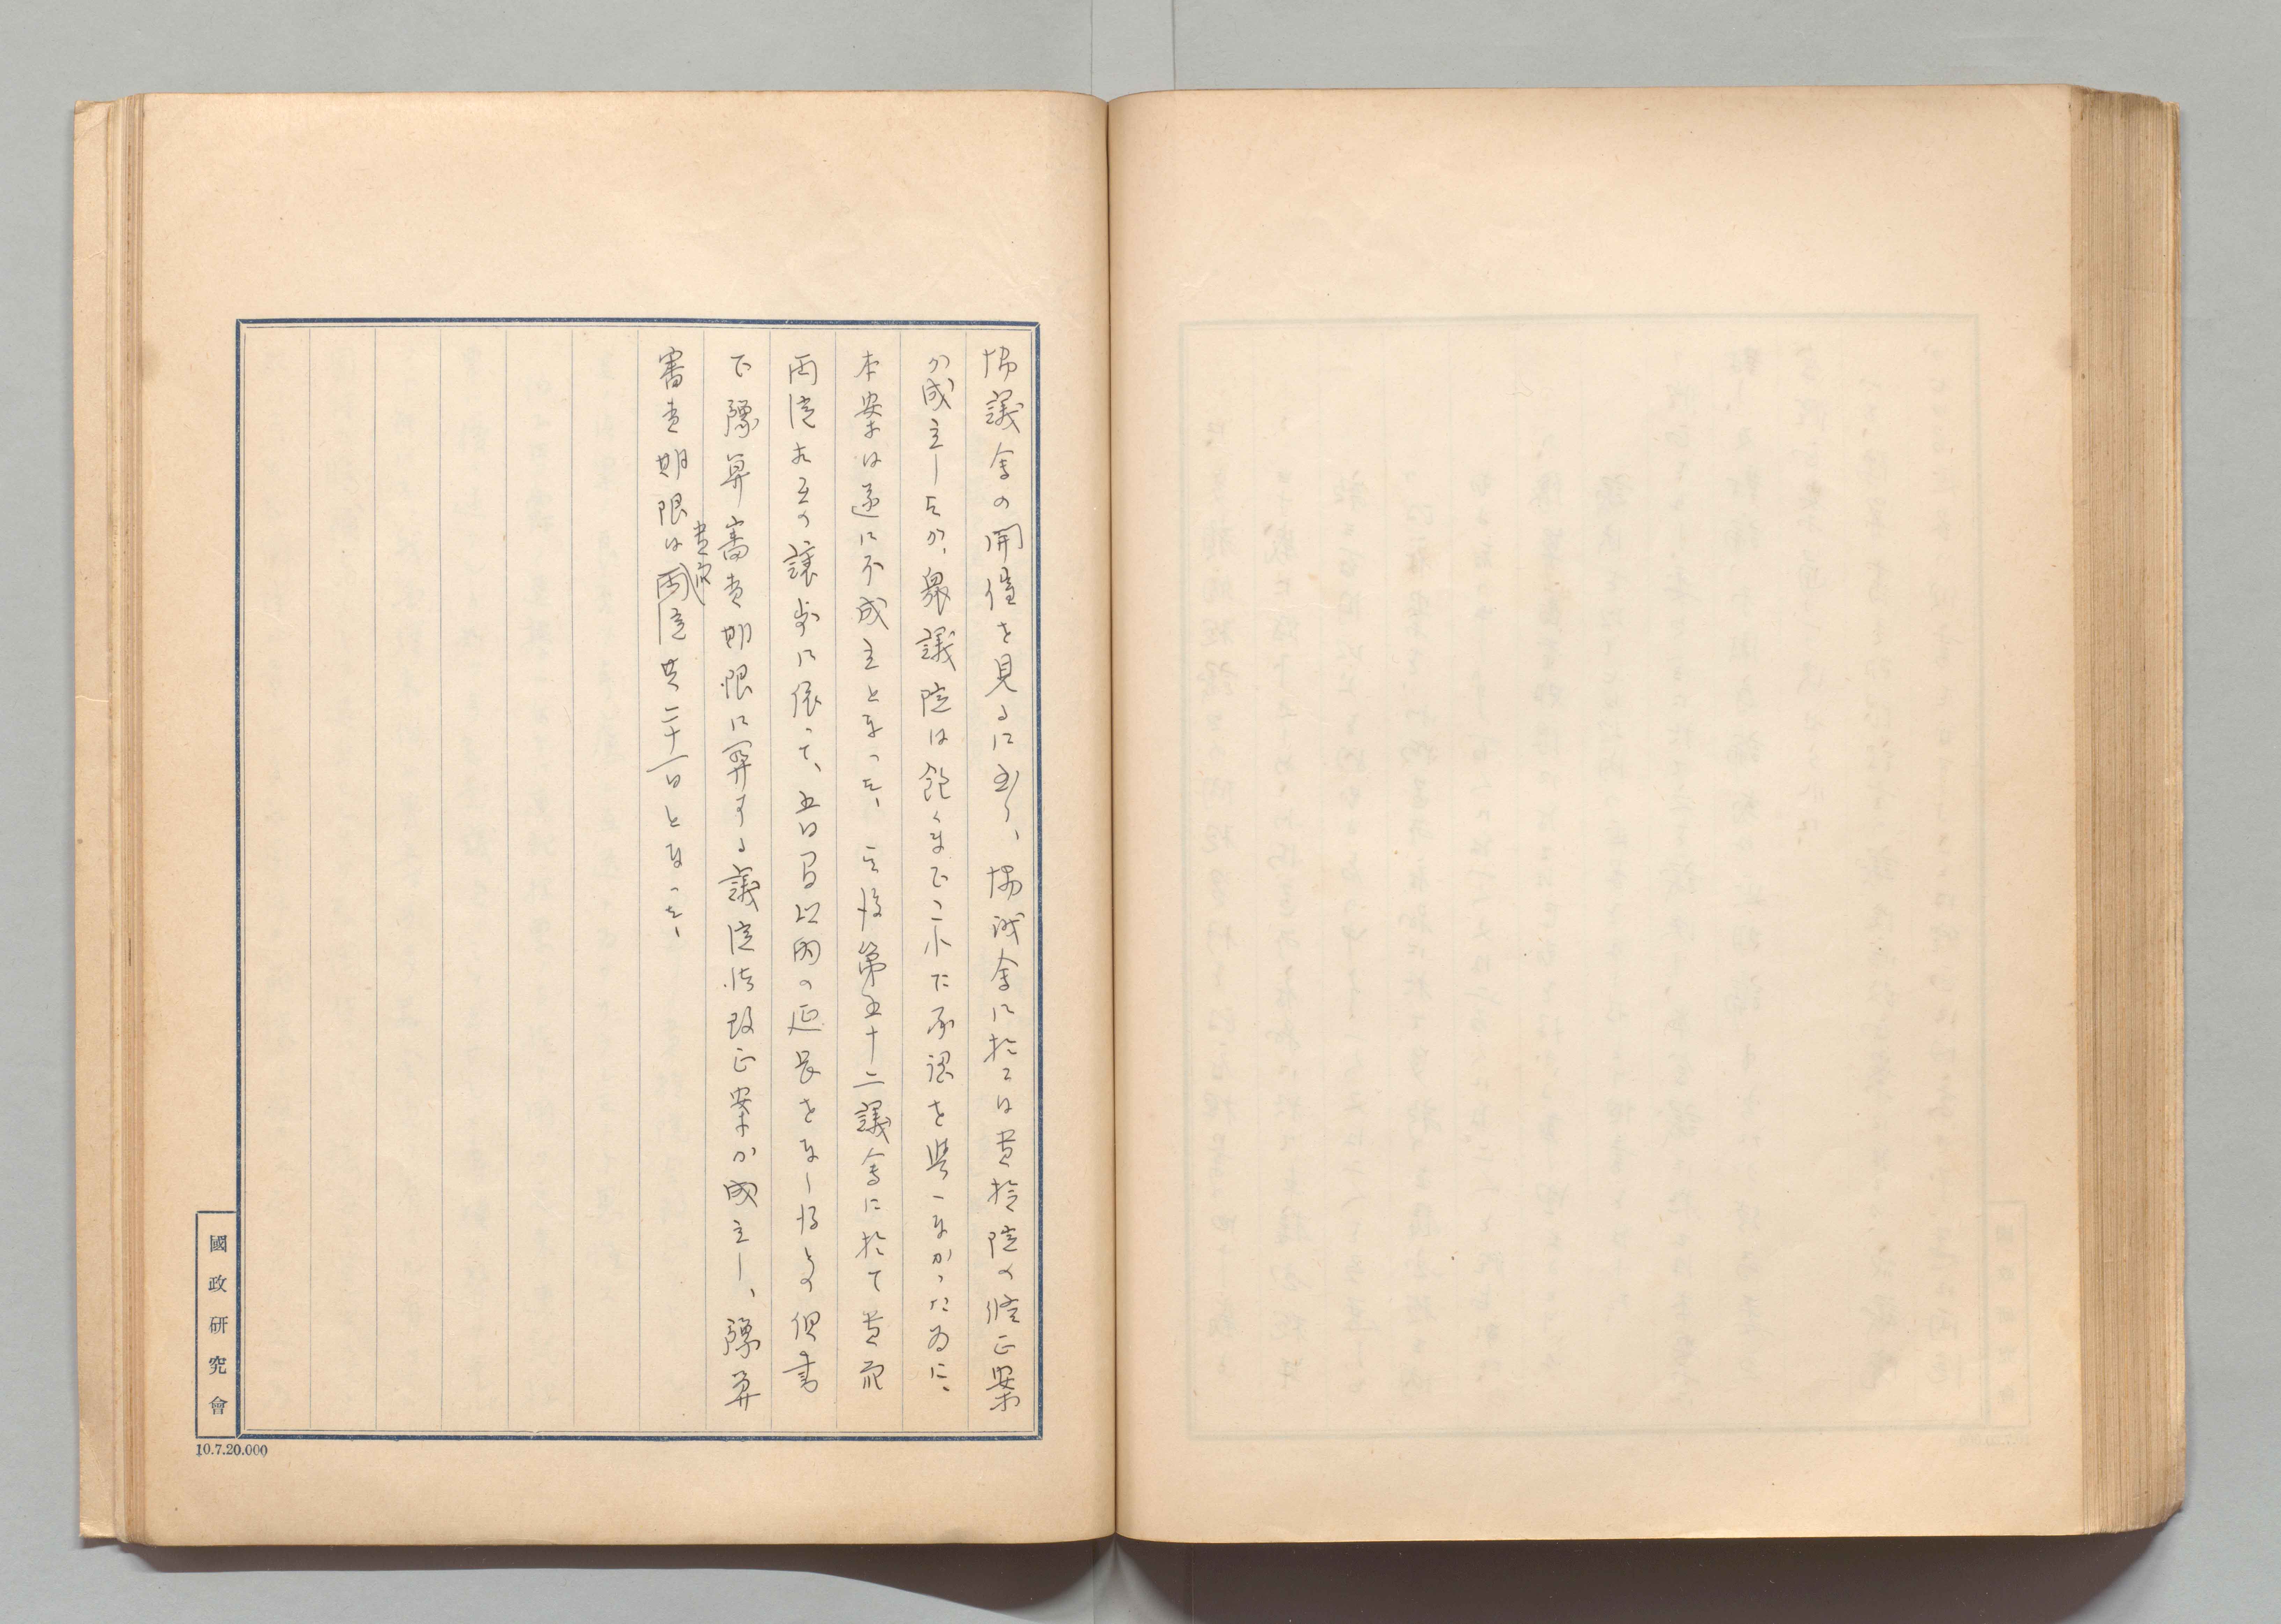 協議会の開催を見るに至り、協議会に於ては貴族院の修正案
が成立したが、衆議院は飽くまでこれに承認を与へなかつた為に、
本案は遂に不成立となつた。其後第五十二議会に於て貴衆
両院相互の譲歩に依つて、五日間以内の延長をなし得るの但書
で予算審査期限に関する議院法改正案が成立し、予算
審査期限は両院共二十一日となつた。
貴衆
國政研究會
10.7.20.000